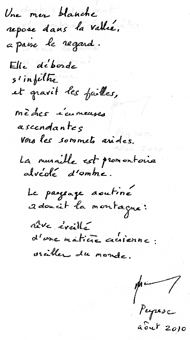 Une mer blanche
repose dans la vallée,
apaise le regard.
Elle déborde
s'infiltre
et gravit les failles,
mèches écumeuses
ascendantes
vers les sommets arides.
La muraille est promontoire
alvéolé d'ombre.
Le paysage satiné
adoucit la montagne:
rêve éveillé
d'une matière aérienne:
oreiller du monde.
Peyresc
août 2010